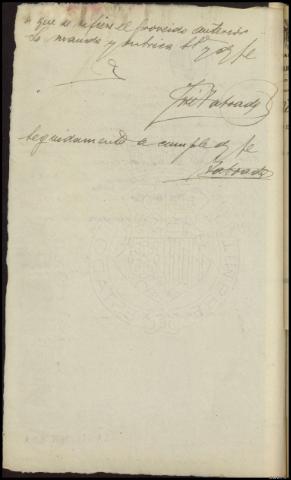 a que se refiere el proveido anterior
lo manda y rubrica Sª y doy fe
José Patrado
Seguidamente se cumple doy fe
Patrado